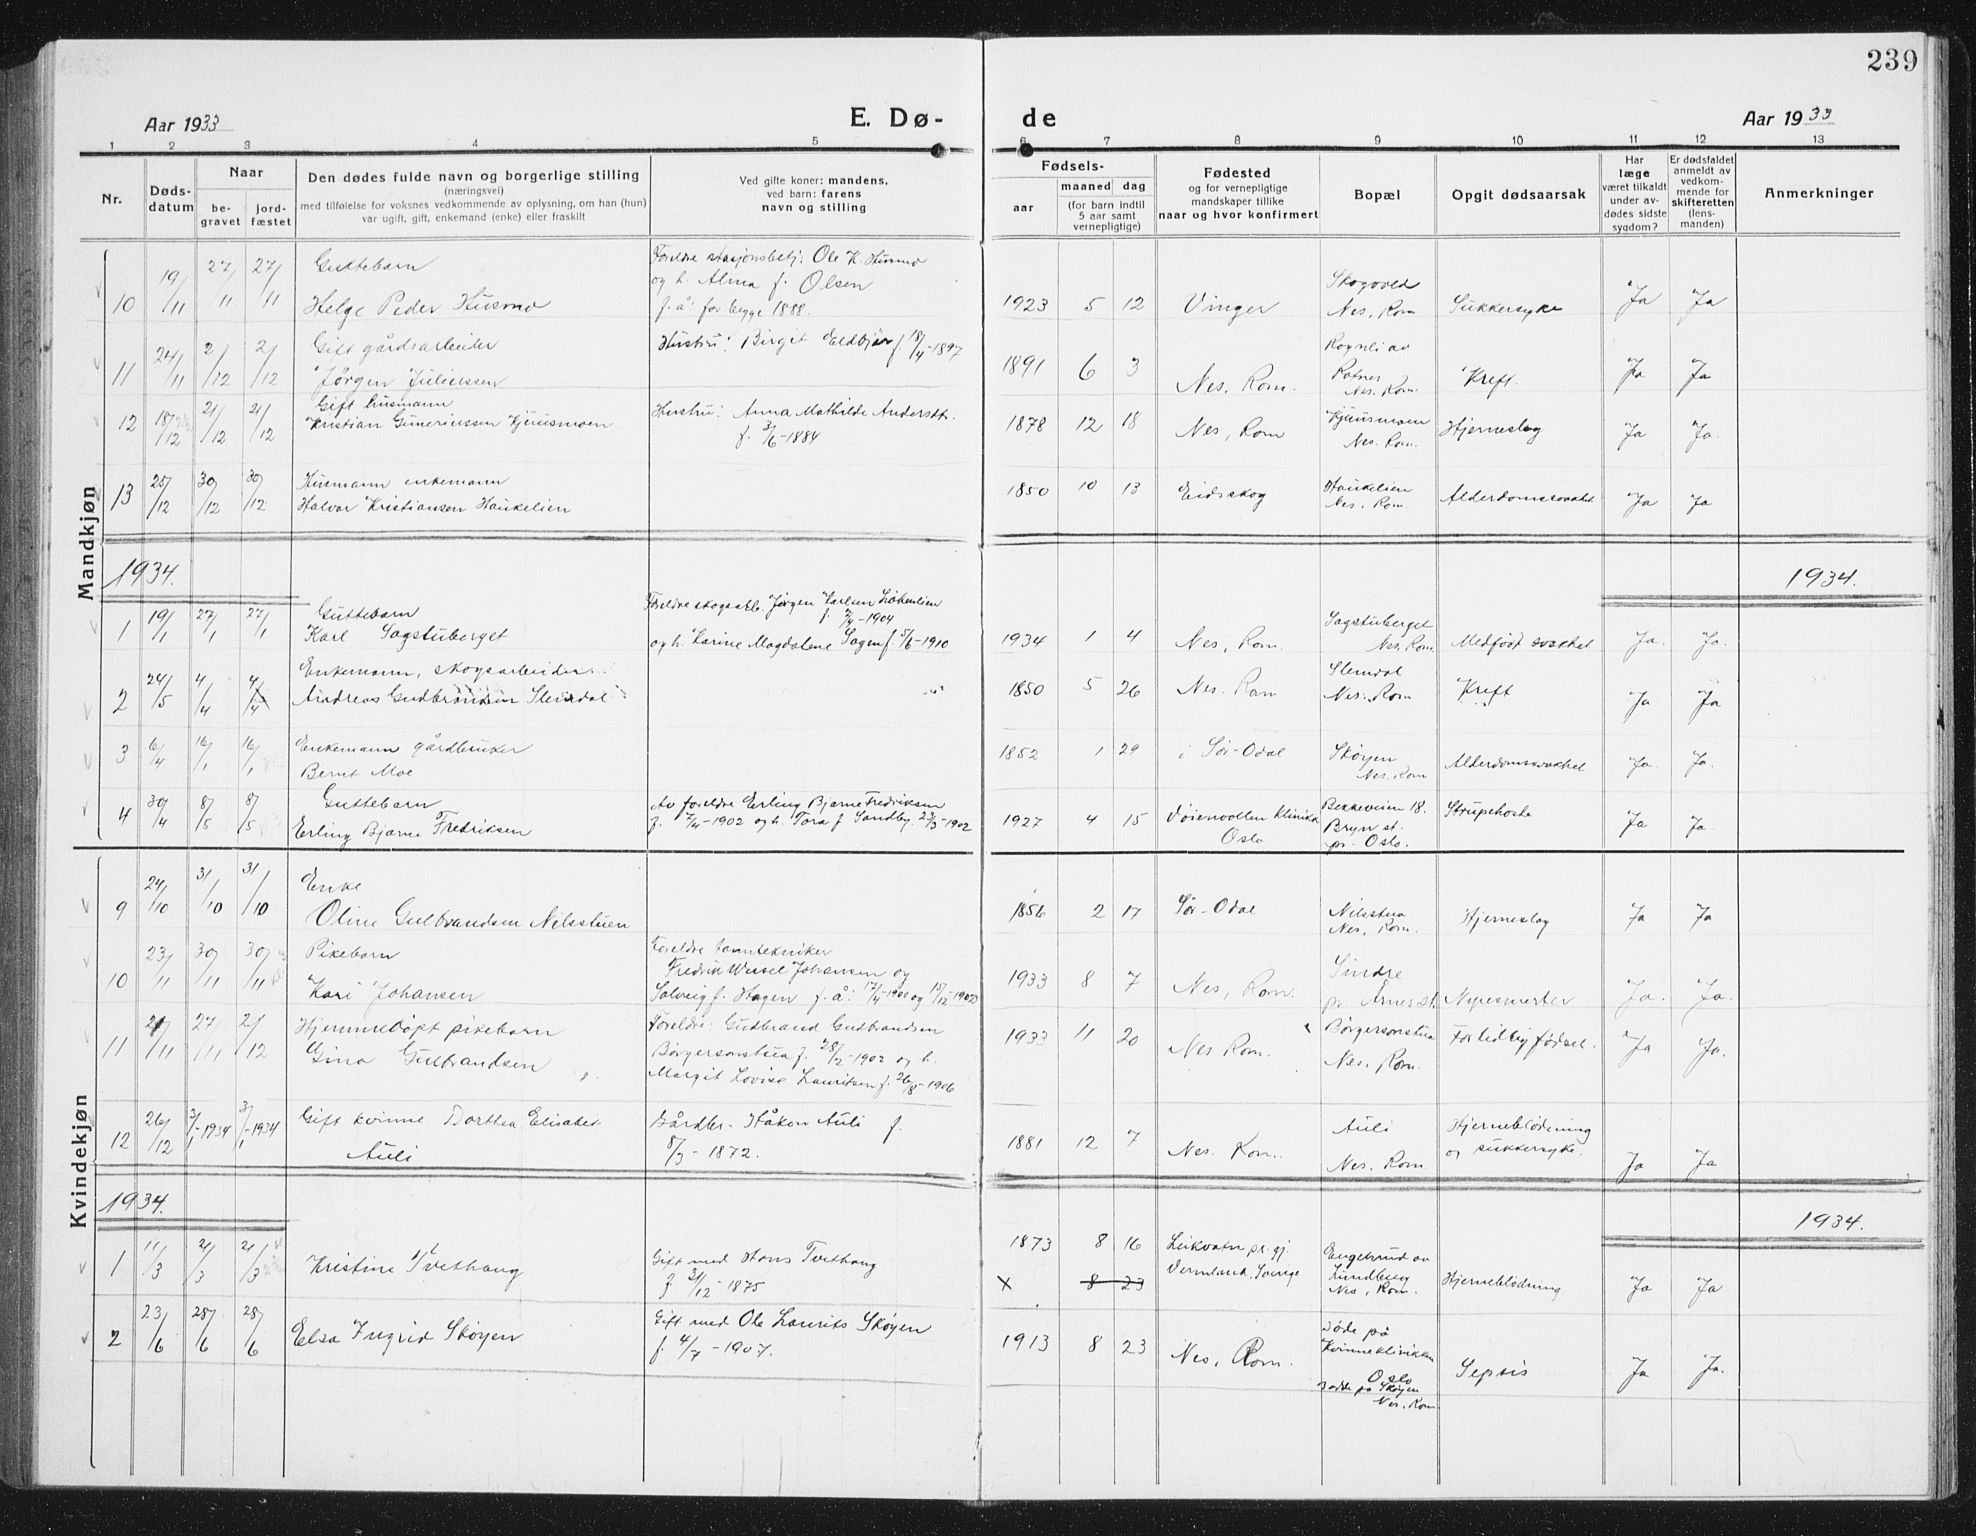 239
Aar 1933
E. Dø-
de
Aar 1933
1 2 3 4 5 6 7 8 9 10 11 12 13
Nr.
Døds-
datum
Naar
be-
gravet
jord-
fæstet
Den dødes fulde navn og borgerlige stilling
(næringsvei)
med tilføielse for voksnes vedkommende av oplysning, om han (hun)
var ugift, gift, enkemand (enke) eller fraskilt
Ved gifte koner: mandens,
ved barn: farens
navn og stilling
Fødsels-
aar
maaned dag
(for barn indtil
5 aar samt
vernepligtige)
Fødested
og for vernepligtige
mandskaper tillike
naar og hvor konfirmert
Bopæl
Opgit dødsaarsak
Har
læge
været tilkaldt
under av-
dødes sidste
sygdom?
Er dødsfaldet
anmeldt av
vedkom-
mende for
skifteretten
(lens-
manden)
Anmerkninger
Mandkjøn
10 19/11 27/11 27/11
Guttebarn
Helge Peder Husmo
Foreldre stasjonsbetj: Ole K. Husmo
og h. Alma f. Olsen
f. å: for begge 1888.
1923 5 12 Vinger
Skogvold
Nes, Rom
Sukkersyke Ja Ja
11 24/11 2/12 2/12
Gift gårdsarbeider
Jørgen Juliussen
Hustru: Birgit Eldbjør f. 18/4-1897
1891 6 3 Nes, Rom.
Rognli av
Nes. Rom.
Kreft. Ja Ja
12 18/12 21/12 21/12
Gift husmann
Kristian Guneriussen Kjuusmoen
Hustru: Anna Mathilde Andersdtr.
f. 3/6-1884
1878 12 18 Nes, Rom
Kjuusmoen
Nes. Rom.
Hjerneslag Ja Ja.
13 25/12 30/12 30/12
Husmann enkemann
Halvor Kristiansen Haukelien
1850 10 13 Eidsskog
Haukelien
Nes. Rom.
Alderdomssvakhet Ja Ja
1934.
1934.
1 19/1 27/1 27/1
Guttebarn
Karl Sagstuberget
Foreldre skogsarb. Jørgen Karlsen Løkenlien
f. 2/4-1904
og h. Karine Magdalene Sagen f. 5/6-1910
1934 1 4 Nes, Rom.
Sagstuberget
Nes, Rom.
Medfødt svakhet Ja. Ja.
2 24/5 4/4 4/4
Enkemann, skogsarbeider
Andreas Gudbrandsen Slemdal
1850 5 26 Nes. Rom
Slemdal
Nes. Rom
Kreft Ja Ja
3 6/4 16/1 16/1
Enkemann gårdbruker
Bernt Moe
1852 1 29 i Sør-Odal
Skøyen
Nes. Rom
Alderdomssvakhet Ja. Ja.
4 30/4 8/5 8/5
Guttebarn
Erling Bjarne Fredriksen
Av foreldre Erling Bjarne Fredriksen
f. 7/4-1902 og h. Tora f Sandby. 23/3-1902
1927 4 15
Voienvollen Klinikk
Oslo
Bekkeveien 18.
Bryn st.
pr. Oslo.
Strupehoste Ja Ja.
Kvindekjøn
9 24/10 31/10 31/10
Enke
Oline Gulbrandsen Nilsstuen
1856 2 17 Sør-Odal
Nilsstua
Nes, Rom.
Hjerneslag Ja Ja
10 23/11 30/11 30/11
Pikebarn
Kari Johansen
Foreldre tanntekniker
Fredrik Wessel Johansen og
Solveig f. Hagen f. å: 17/4-1900 og 15/12-1902
1933 8 7 Nes, Rom.
Sindre
pr. Årnes st.
Nyresmerter Ja. Ja.
11 21/11 27/11 2/12
Hjemmedøpt pikebarn
Gina Gulbrandsen
Foreldre: Gudbrand Gudbrandsen
Børgersonstua f. 28/2-1902 og h.
Margit Lovise Lauritsen f. 26/8-1906
1933 11 20 Nes Rom.
Børgersonstua
Nes, Rom.
For tidlig fødsel. Ja Ja.
12 26/12 3/1-1934 3/1-1934
Gift kvinne Dorthea Elisabet
Auli
Gårdbr. Håkon Auli f.
8/3-1872.
1881 12 7 Nes. Rom.
Auli
Nes, Rom.
Hjerneblødning
og sukkersyke.
Ja Ja
1934.
1934.
1 11/3 21/3 21/3
Kristine Tvethaug
Gift med Hans Tvethaug
f 31/12-1875
1873 8 16
x 8 23
Leikvatn pr. gj.
Vermland, Sverige
Engebrud av
Lundberg
Nes, Rom.
Hjerneblødning Ja Ja
2 23/6 28/6 28/6
Elsa Ingrid Skøyen
Gift med Ole Laurits Skøyen
f. 4/7-1907.
1913 8 23 Nes, Rom.
Døde på
Kvinneklinikken
Oslo
bodde på Skøyen
Nes, Rom
Sepsis Ja Ja.